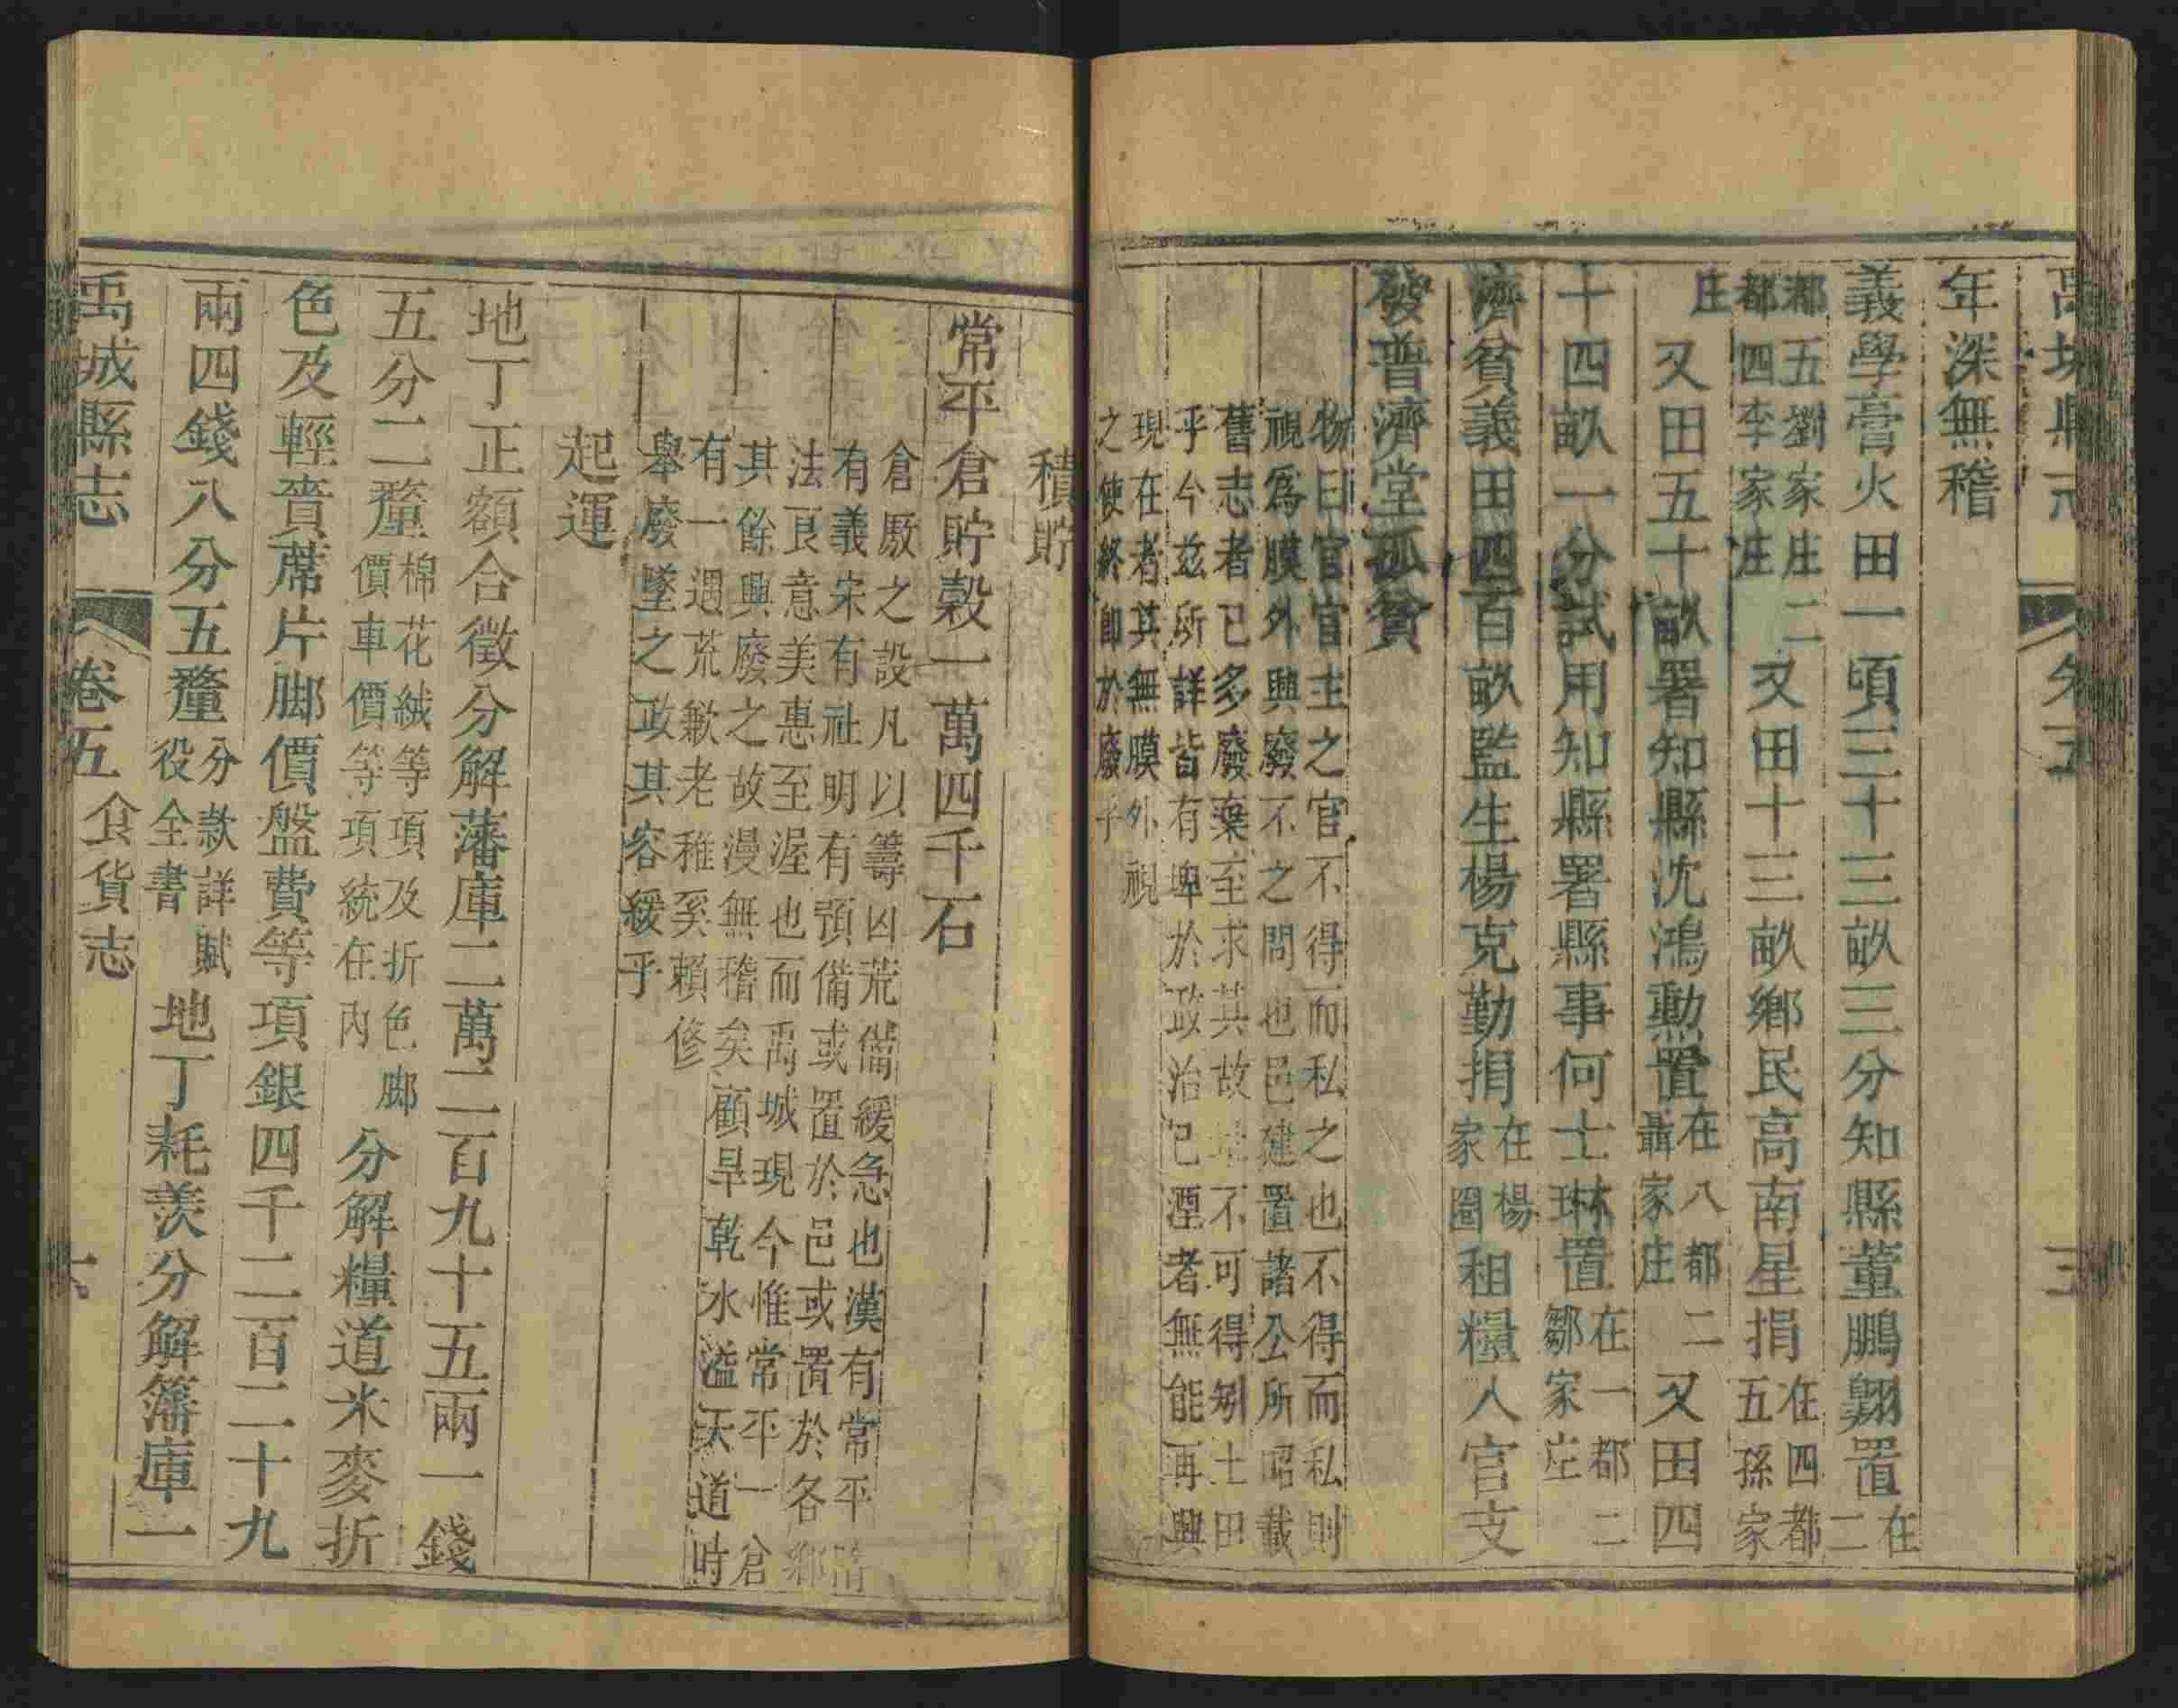 禹城縣志
卷五
年深無稽
義學膏火田一頃三十三畝三分知縣董鵬翔置在二
都五劉家庄二都四李家庄又田十三畝鄉民高南星捐在四都五孫家
庄又田五十畝署知縣沈鴻勲置在八都二聶家庄又田四
十四畝一分試用知縣署縣事何士琳置在一都二鄒家庄
濟貧義田四百畝監生楊克勤捐在楊家圈租糧入官支
發普濟堂孤貧
物曰官官主之官不得而私之也不得而私則
視為膜外興廢不之問也邑建置諸公所昭載
舊志者已多廢棄至求其故址不可得矧士田
乎今兹所詳皆有卑於政治已湮者無能再興
現在者其無膜外視
之使終卽於廢乎
積貯
常平倉貯榖一萬四千石
倉厫之設凡以籌凶荒備緩急也漢有常平隋
有義宋有社明有預備或置於邑或置於各鄉
法良意美惠至渥也而禹城現今惟常平一倉
其餘興廢之故漫無稽矣顧旱乾水溢天道時
有一遇荒歉老稚奚賴修
舉廢墜之政其容緩乎
起運
地丁正額合徵分解藩庫二萬二百九十五兩一錢
五分二釐棉花絨等項及折色脚價車價等項統在內分解糧道米麥折
色及輕賫蓆片脚價盤費等項銀四千二百二十九
兩四錢八分五釐分款詳賦役全書地丁耗羨分解藩庫一
禹城縣志
卷五
食貨志
六